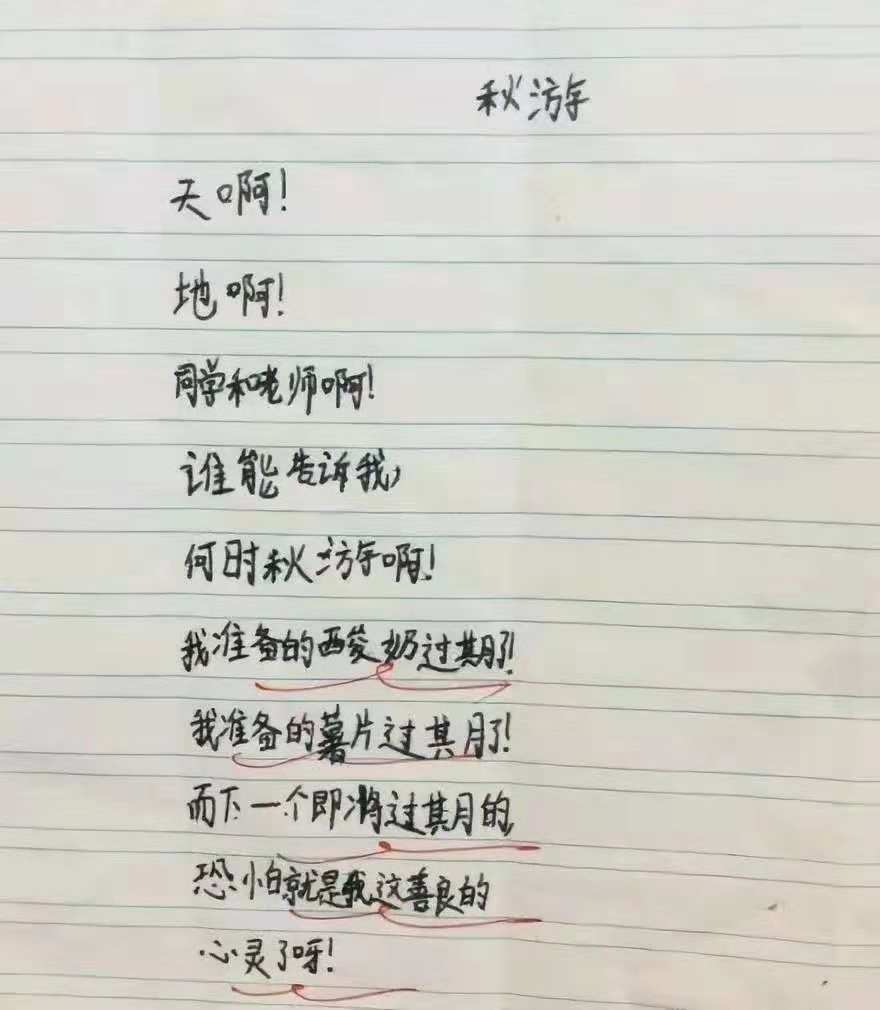 秋游
天啊！
地啊！
同学和老师啊！
谁能告诉我，
何时秋游啊！
我准备的酸奶过期了！
我准备的薯片过期了！
而下一个即将过期的，
恐怕就是我这善良的
心灵了呀！